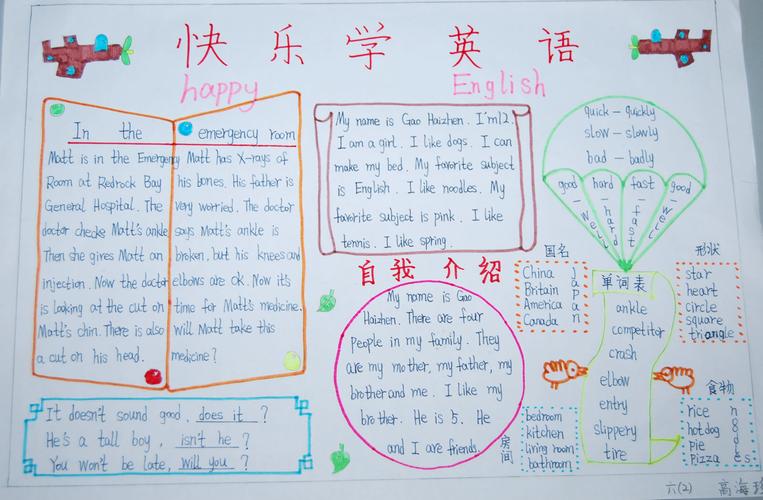 快乐学英语
happy English
In the emergency room
Matt is in the Emergency
Room at Redrock Bay
General Hospital. The
doctor checks Matt's ankle
Then she gives Matt an
injection. Now the doctor
is looking at the cut on
Matt's chin. There is also
a cut on his head.
Matt has X-rays of
his bones. His father is
very worried. The doctor
says Matt's ankle is
broken, but his knees and
elbows are ok. Now it's
time for Matt's medicine.
Will Matt take this
medicine?
It doesn't sound good, does it ?
He's a tall boy, isn't he ?
You won't be late, will you ?
My name is Gao Haizhen. I'm 12.
I am a girl. I like dogs. I can
make my bed. My favorite subject
is English. I like noodles. My
favorite subject is pink. I like
tennis. I like spring.
自我介绍
My name is Gao
Haizhen. There are four
people in my family. They
are my mother, my father, my
brother and me. I like my
brother. He is 5. He
and I are friends.
quick - quickly
slow - slowly
bad - badly
good - well
hard - hard
fast - fast
good - well
国名
China
Britain
America
Canada
Japan
单词表
ankle
competitor
crash
elbow
entry
slippery
tire
形状
star
heart
circle
square
triangle
房间
bedroom
kitchen
living room
bathroom
食物
rice
hot dog
pie
pizza
六(2) 高海珍